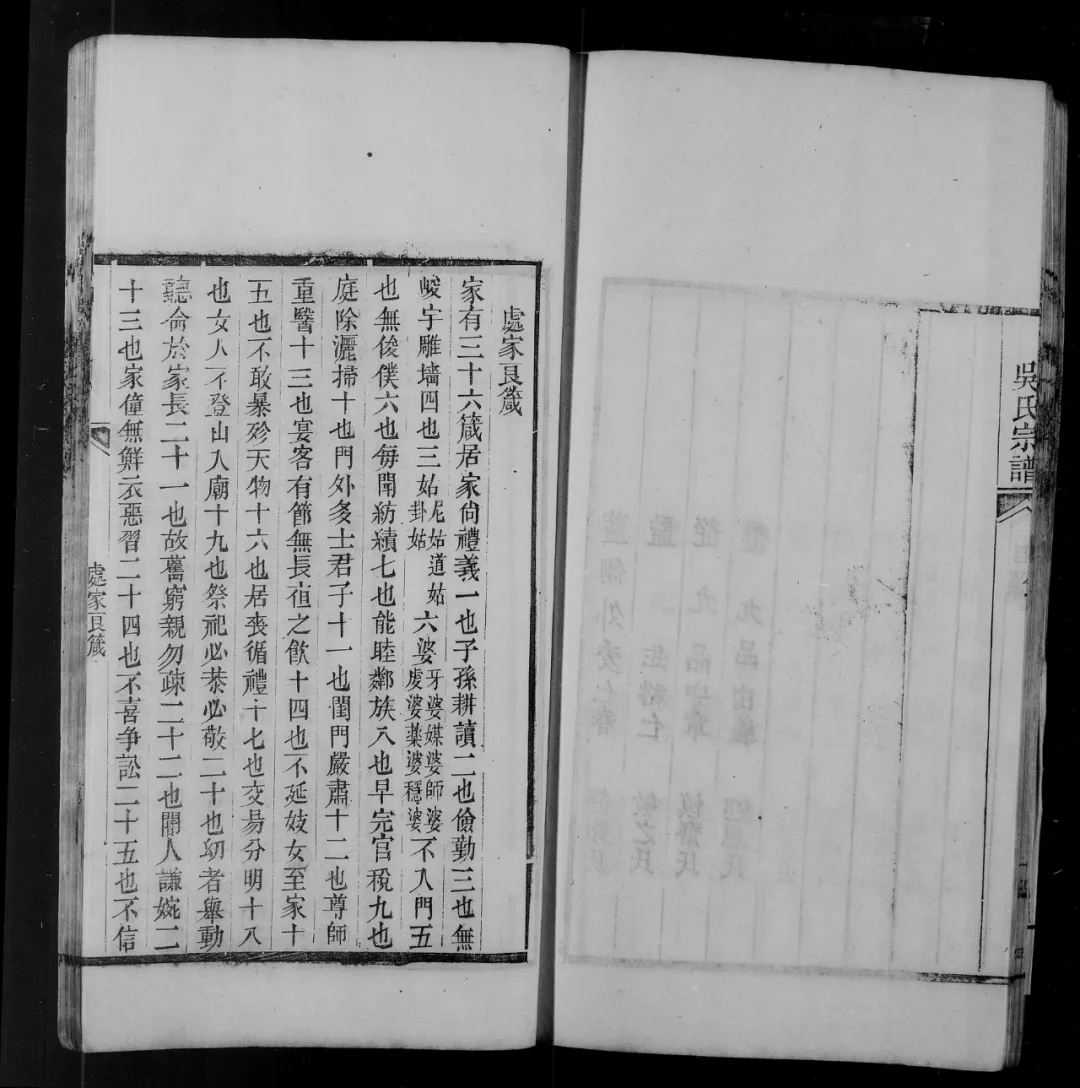 吳氏宗譜
處家良箴
家有三十六箴居家尙禮義一也子孫耕讀二也儉勤三也無
峻宇雕墻四也三姑尼姑道姑卦姑六婆牙婆媒婆師婆虔婆藥婆穩婆不入門五
也無俊僕六也每聞紡績七也能睦鄰族八也早完官稅九也
庭除灑掃十也門外多士君子十一也閨門嚴肅十二也尊師
重醫十三也宴客有節無長夜之飮十四也不延妓女至家十
五也不敢暴殄天物十六也居喪循禮十七也交易分明十八
也女人不登山入廟十九也祭祀必恭必敬二十也幼者舉動
聽命於家長二十一也故舊窮親勿疎二十二也閽人謙婉二
十三也家僮無鮮衣惡習二十四也不喜爭訟二十五也不信
處家良箴